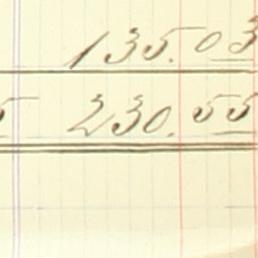 135.03
5 230.55